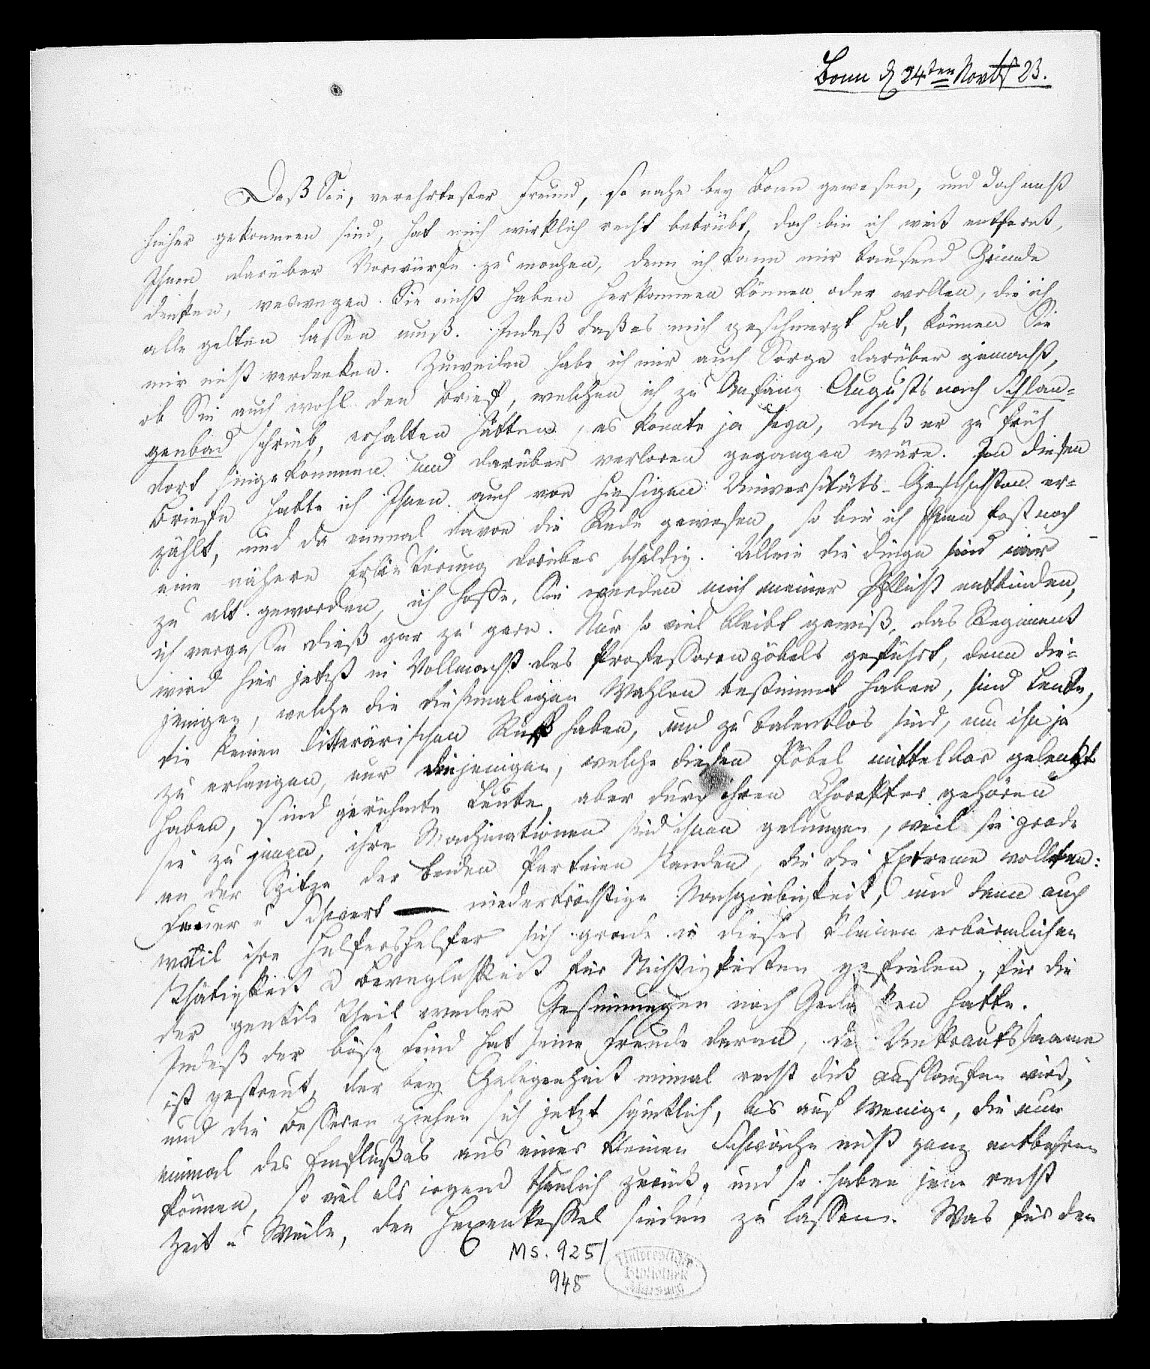 Bonn d 24ten Novbr 23.
Daß Sie, verehrtester Freund, so nahe bey Bonn gewesen, und doch nicht
hieher gekommen sind, hat mich wirklich recht betrübt, doch bin ich weit entfernt,
Ihnen darüber Vorwürfe zu machen, denn ich kann mir tausend Gründe
denken, weswegen Sie nicht haben herkommen können oder wollen, die ich
alle gelten lassen muß. Indeß daß es mich geschmerzt hat, können Sie
mir nicht verdenken. Zuweilen habe ich mir auch Sorge darüber gemacht,
ob Sie auch wohl den Brief, welchen ich zu Anfang Augusts nach Schlan-
genbad schrieb, erhalten hätten, es konnte ja seyn, daß er zu früh
dort hingekommen und darüber verloren gegangen wäre. In diesem
Briefe hatte ich Ihnen auch von hiesigen Universitäts-Geschichten er-
zählt, und da einmal davon die Rede gewesen, so bin ich Ihnen fast noch
eine nähere Erläuterung darüber schuldig. Allein die Dinge sind mir
zu alt geworden, ich hoffe, Sie werden mich meiner Pflicht entbinden,
ich vergesse dieß gar zu gern. Nur so viel bleibt gewiß, das Regiment
wird hier jetzt in Vollmacht des Professorenpöbels geführt, denn die-
jenigen, welche die dießmaligen Wahlen bestimmt haben, sind Leute,
die keinen litterärischen Ruf haben, und zu talentlos sind, um ihn je
zu erlangen, nur diejenigen, welche diesen Pöbel mittelbar gelenkt
haben, sind gerühmte Leute, aber durch ihren Charakter gehören
sie zu jenen, ihre Machinationen sind ihnen gelungen, weil sie grade
an der Spitze der beiden Parteien standen, die die Extreme wollten:
Feuer u Schwert — niederträchtige Nachgiebigkeit, und dann auch
weil ihre Helfershelfer sich grade in dieser kleinen erbärmlichen
Thätigkeit u Beweglichkeit für Nichtigkeiten gefielen, für die
der gentile Theil weder Gesinnungen noch Gedanken hatte.
Indeß der böse Feind hat seine Freude daran, der Unkrautssaame
ist gestreut, der bey Gelegenheit einmal recht dick auflaufen wird,
und die Besseren ziehen sich jetzt sämtlich, bis auf wenige, die nun
einmal des Einflußes aus einer kleinen Schwäche nicht ganz entbehren
können, so viel als irgend thunlich zurück, und so haben jene recht
Zeit u Weile, den Hexenkessel sieden zu lassen. Was für den
Ms. 925/
948
Universitäts
Bibliothek
Marburg